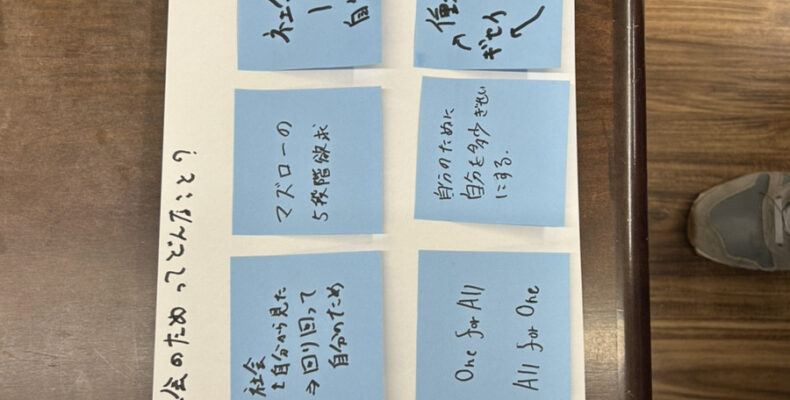 会のためってどんなこと?
社会
を自分から見た
⇒回り回って
自分のため
マズローの
5段階欲求
One for All
All for One
自分のために
自分を多少ぎせい
にする.
ギセイ